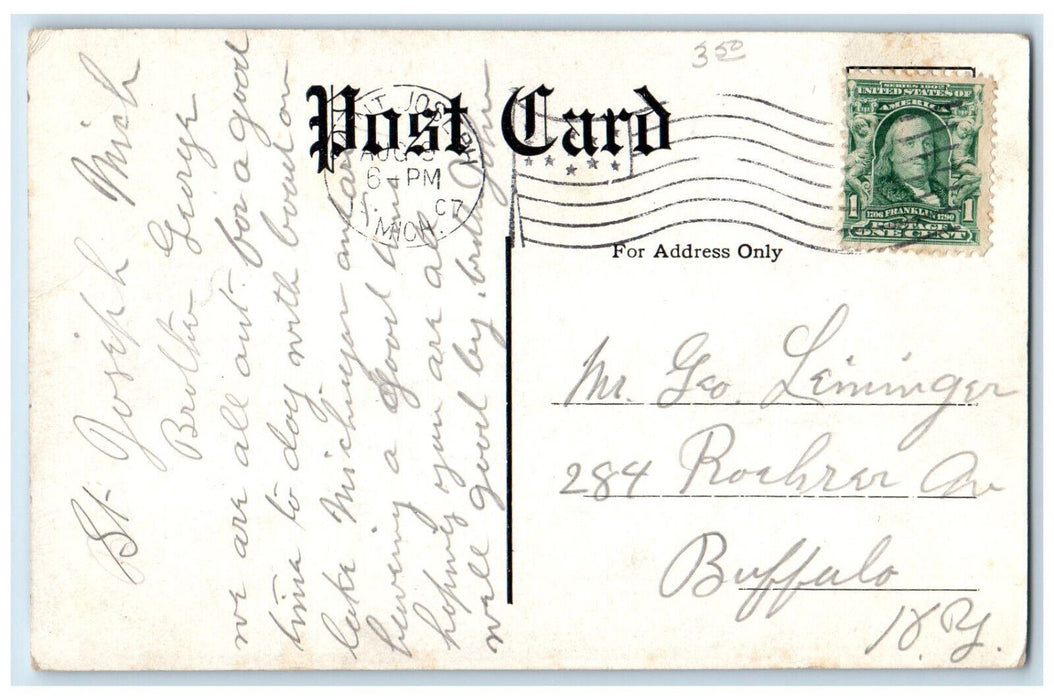 St. Joseph Mich
Brother George
we are all out for a good
time to day with boat on
lake Michigan and are
heving a good time
hoping you are all
well good by. brother John
Post Card
SAINT JOSEPH
AUG
6-PM
07
MICH.
3 50
SERIES 1902
UNITED STATES OF
AMERICA
1706 FRANKLIN 1790
1 1
POSTAGE
ONE CENT
For Address Only
Mr. Geo. Leininger
284 Roehrer Av
Buffalo
N.Y.